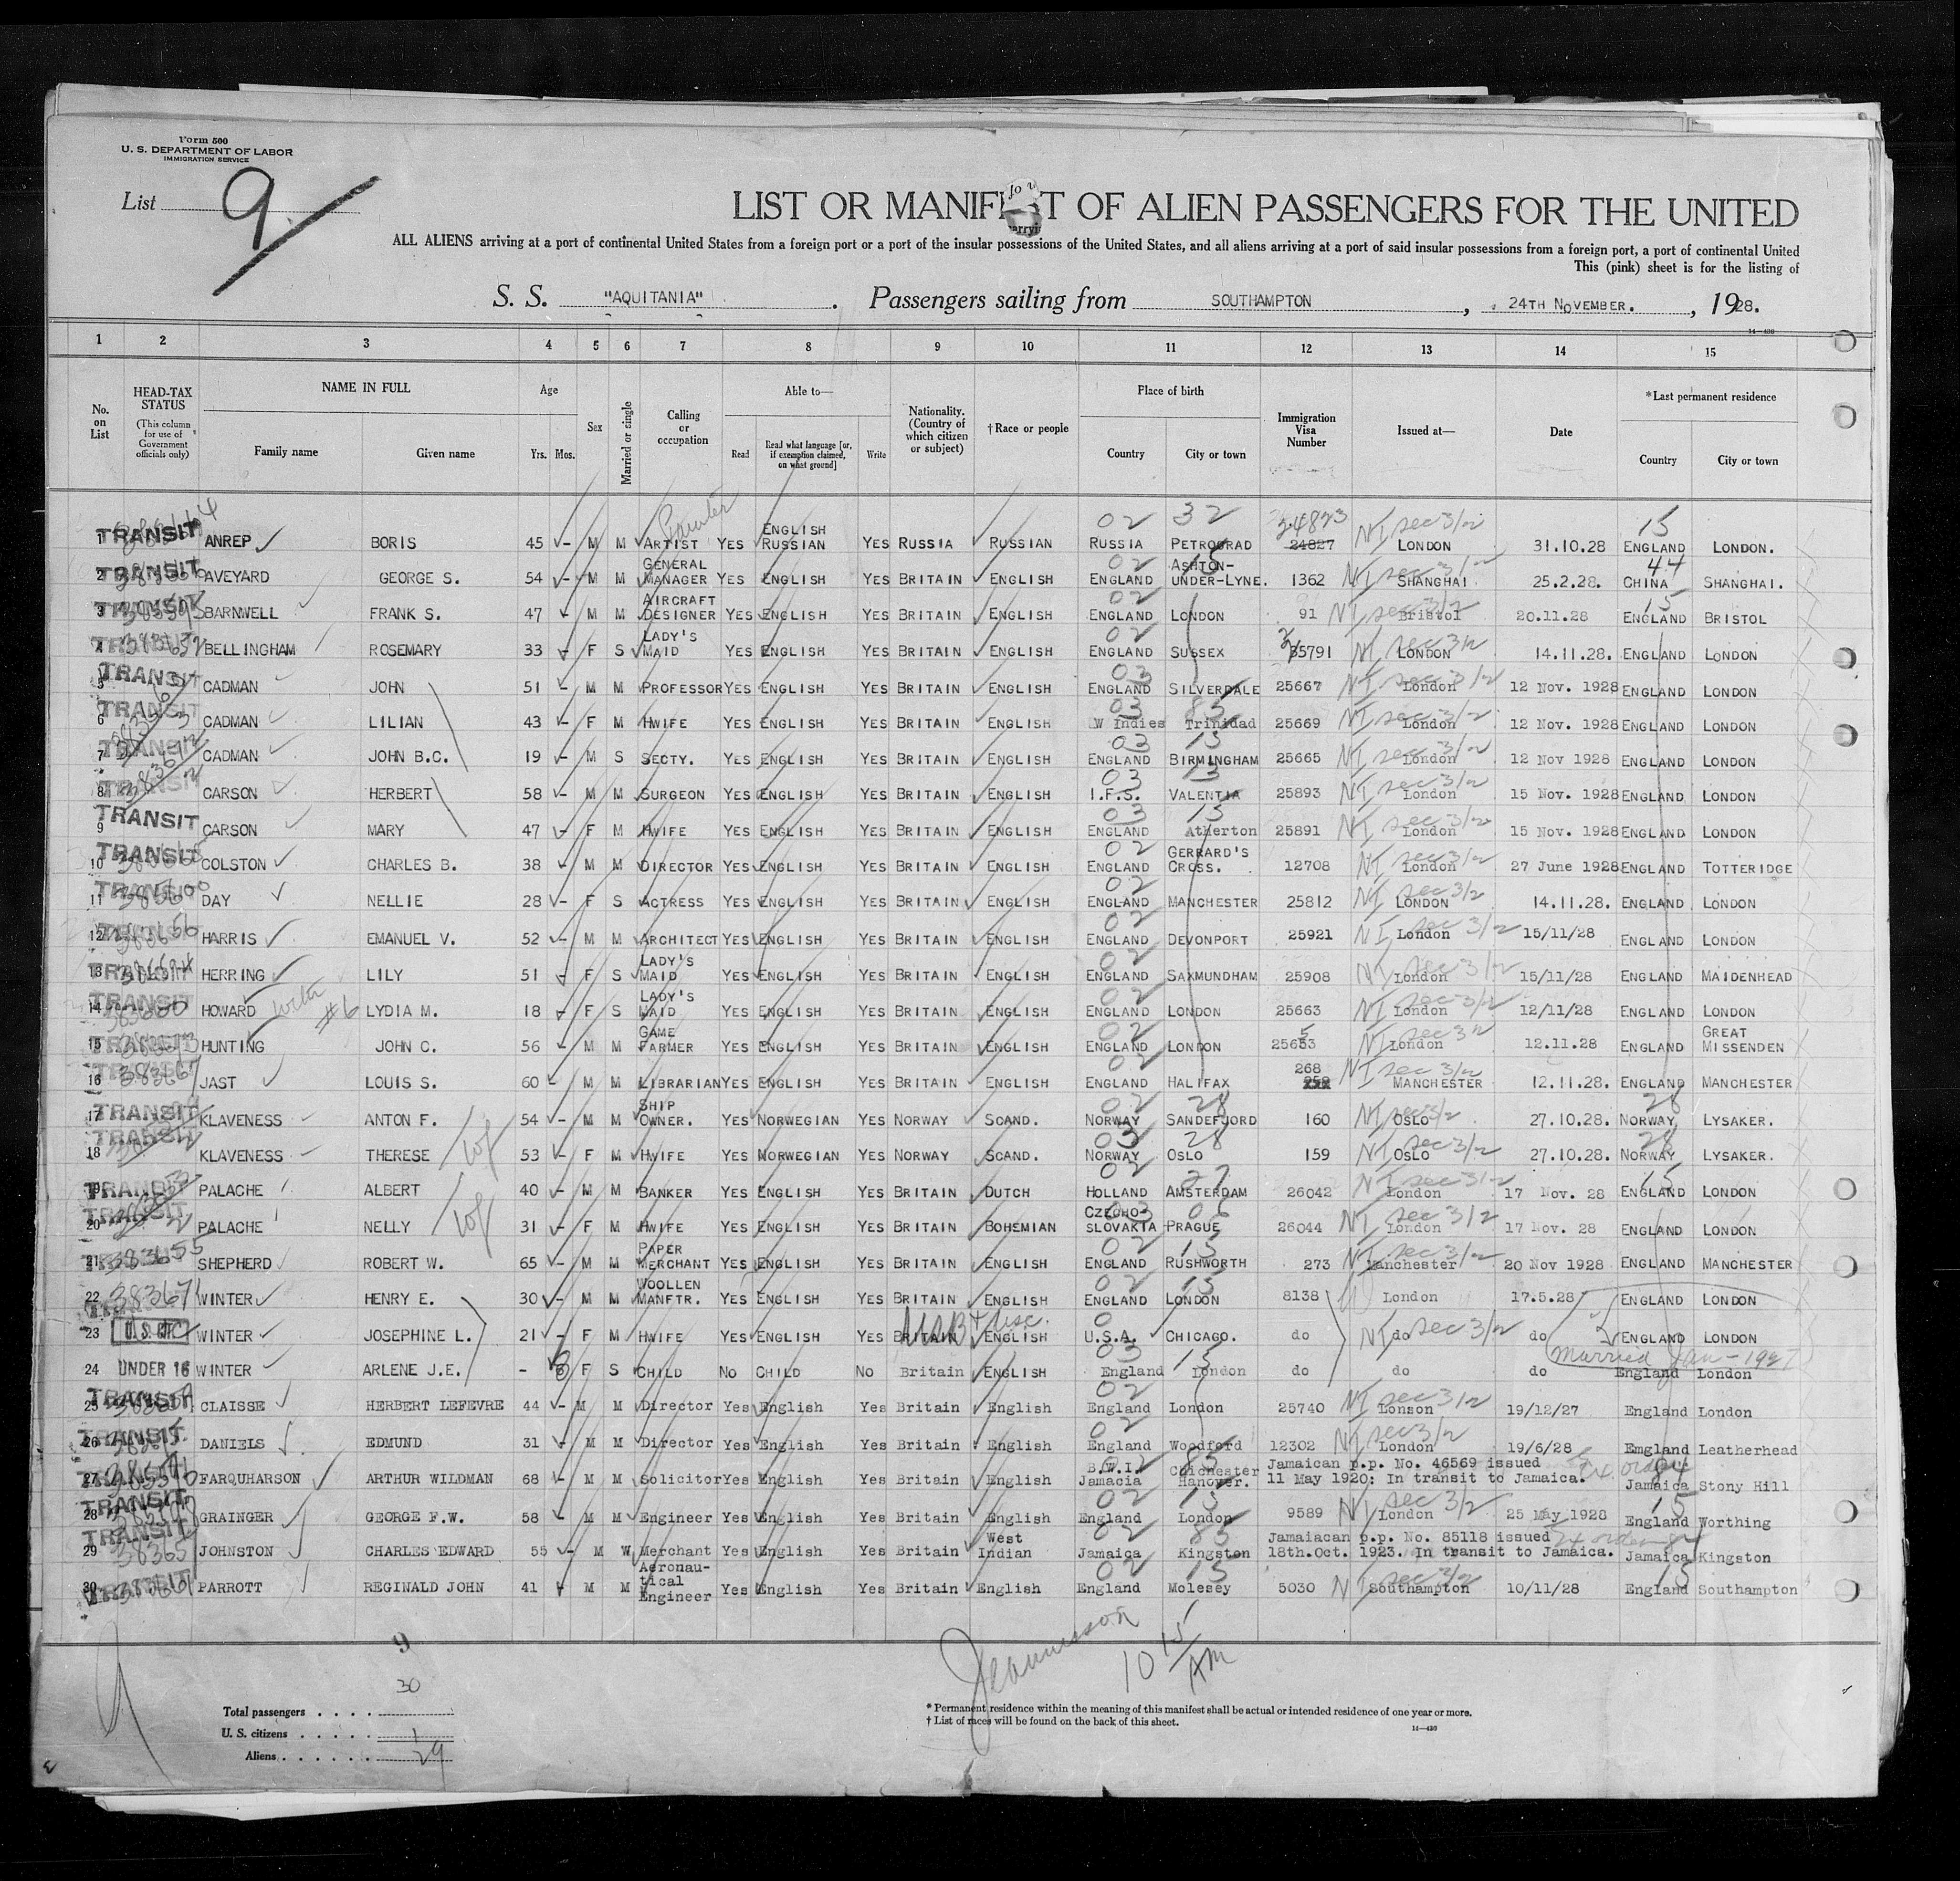 Form 500
U. S. DEPARTMENT OF LABOR
IMMIGRATION SERVICE
List 9
LIST OR MANIFEST OF ALIEN PASSENGERS FOR THE UNITED
ALL ALIENS arriving at a port of continental United States from a foreign port or a port of the insular possessions of the United States, and all aliens arriving at a port of said insular possessions from a foreign port, a port of continental United
This (pink) sheet is for the listing of
S. S. "AQUITANIA". Passengers sailing from SOUTHAMPTON, 24TH NOVEMBER. , 1928.
14—430
1 2 3 4 5 6 7 8 9 10 11 12 13 14 15
No. on List HEAD-TAX STATUS (This column for use of Government officials only) NAME IN FULL Family name Given name Age Yrs. Mos. Sex Married or single Calling or occupation Able to— Read Read what language [or, if exemption claimed, on what ground] Write Nationality. (Country of which citizen or subject) † Race or people Place of birth Country City or town Immigration Visa Number Issued at— Date *Last permanent residence Country City or town
1 TRANSIT ANREP BORIS 45 - M M ARTIST Painter YES ENGLISH RUSSIAN YES RUSSIA RUSSIAN RUSSIA 02 PETROGRAD 32 24823 24827 NI sec 3/2 LONDON 31.10.28 ENGLAND 15 LONDON.
2 TRANSIT AVEYARD GEORGE S. 54 - M M GENERAL MANAGER YES ENGLISH YES BRITAIN ENGLISH ENGLAND 02 ASHTON-UNDER-LYNE. 15 1362 NI sec 3/2 SHANGHAI 25.2.28. CHINA 44 SHANGHAI.
3 TRANSIT BARNWELL FRANK S. 47 - M M AIRCRAFT DESIGNER YES ENGLISH YES BRITAIN ENGLISH ENGLAND 02 LONDON 91 NI sec 3/2 Bristol 20.11.28 ENGLAND 15 BRISTOL
4 TRANSIT BELLINGHAM ROSEMARY 33 - F S LADY'S MAID YES ENGLISH YES BRITAIN ENGLISH ENGLAND 02 SUSSEX 25791 NI sec 3/2 LONDON 14.11.28. ENGLAND LONDON
5 TRANSIT CADMAN JOHN 51 - M M PROFESSOR YES ENGLISH YES BRITAIN ENGLISH ENGLAND 03 SILVERDALE 25667 NI sec 3/2 London 12 Nov. 1928 ENGLAND LONDON
6 TRANSIT CADMAN LILIAN 43 - F M HWIFE YES ENGLISH YES BRITAIN ENGLISH W Indies 03 Trinidad 85 25669 NI sec 3/2 London 12 Nov. 1928 ENGLAND LONDON
7 TRANSIT CADMAN JOHN B.C. 19 - M S SECTY. YES ENGLISH YES BRITAIN ENGLISH ENGLAND 03 BIRMINGHAM 15 25665 NI sec 3/2 London 12 Nov 1928 ENGLAND LONDON
8 TRANSIT CARSON HERBERT 58 - M M SURGEON YES ENGLISH YES BRITAIN ENGLISH I.F.S. 03 VALENTIA 13 25893 NI sec 3/2 London 15 Nov. 1928 ENGLAND LONDON
9 TRANSIT CARSON MARY 47 - F M HWIFE YES ENGLISH YES BRITAIN ENGLISH ENGLAND 03 Atherton 15 25891 NI sec 3/2 London 15 Nov. 1928 ENGLAND LONDON
10 TRANSIT COLSTON CHARLES B. 38 - M M DIRECTOR YES ENGLISH YES BRITAIN ENGLISH ENGLAND 02 GERRARD'S CROSS. 12708 NI sec 3/2 London 27 June 1928 ENGLAND TOTTERIDGE
11 TRANSIT DAY NELLIE 28 - F S ACTRESS YES ENGLISH YES BRITAIN ENGLISH ENGLAND 02 MANCHESTER 25812 NI sec 3/2 LONDON 14.11.28. ENGLAND LONDON
12 TRANSIT HARRIS EMANUEL V. 52 - M M ARCHITECT YES ENGLISH YES BRITAIN ENGLISH ENGLAND 02 DEVONPORT 25921 NI sec 3/2 London 15/11/28 ENGLAND LONDON
13 TRANSIT HERRING LILY 51 - F S LADY'S MAID YES ENGLISH YES BRITAIN ENGLISH ENGLAND 02 SAXMUNDHAM 25908 NI sec 3/2 London 15/11/28 ENGLAND MAIDENHEAD
14 TRANSIT HOWARD with #6 LYDIA M. 18 - F S LADY'S MAID YES ENGLISH YES BRITAIN ENGLISH ENGLAND 02 LONDON 25663 NI sec 3/2 London 12/11/28 ENGLAND LONDON
15 TRANSIT HUNTING JOHN C. 56 - M M GAME FARMER YES ENGLISH YES BRITAIN ENGLISH ENGLAND 02 LONDON 25653 5 NI sec 3/2 London 12.11.28 ENGLAND GREAT MISSENDEN
16 TRANSIT 383667 JAST LOUIS S. 60 - M M LIBRARIAN YES ENGLISH YES BRITAIN ENGLISH ENGLAND 02 HALIFAX 268 NI sec 3/2 MANCHESTER 12.11.28. ENGLAND MANCHESTER
17 TRANSIT KLAVENESS ANTON F. 54 - M M SHIP OWNER. YES NORWEGIAN YES NORWAY SCAND. NORWAY 02 SANDEFJORD 28 160 NI sec 3/2 OSLO 27.10.28. NORWAY 28 LYSAKER.
18 TRANSIT KLAVENESS THERESE 53 - F M HWIFE YES NORWEGIAN YES NORWAY SCAND. NORWAY 03 OSLO 28 159 NI sec 3/2 OSLO 27.10.28. NORWAY 28 LYSAKER.
19 TRANSIT PALACHE ALBERT 40 - M M BANKER YES ENGLISH YES BRITAIN DUTCH HOLLAND 02 AMSTERDAM 27 26042 NI sec 3/2 London 17 Nov. 28 ENGLAND 15 LONDON
20 TRANSIT PALACHE NELLY 31 - F M HWIFE YES ENGLISH YES BRITAIN BOHEMIAN CZECHO-SLOVAKIA 03 PRAGUE 06 26044 NI sec 3/2 London 17 Nov. 28 ENGLAND LONDON
21 383655 SHEPHERD ROBERT W. 65 - M M PAPER MERCHANT YES ENGLISH YES BRITAIN ENGLISH ENGLAND 02 RUSHWORTH 15 273 NI sec 3/2 Manchester 20 Nov 1928 ENGLAND MANCHESTER
22 383671 WINTER HENRY E. 30 - M M WOOLLEN MANFTR. YES ENGLISH YES BRITAIN ENGLISH ENGLAND 02 LONDON 15 8138 London 17.5.28 ENGLAND LONDON
23 WINTER JOSEPHINE L. 21 - F M HWIFE YES ENGLISH YES BRITAIN ENGLISH U.S.A. 0 CHICAGO. do NI do sec 3/2 do ENGLAND LONDON
Married Jan-1927
24 UNDER 16 WINTER ARLENE J.E. - 8 F S CHILD NO CHILD NO Britain ENGLISH England 03 London 15 do do do England London
25 TRANSIT CLAISSE HERBERT LEFEVRE 44 - M M Director Yes English Yes Britain English England 02 London 25740 NI sec 3/2 Lonson 19/12/27 England London
26 TRANSIT DANIELS EDMUND 31 - M M Director Yes English Yes Britain English England 02 Woodford 12302 NI sec 3/2 London 19/6/28 Emgland Leatherhead
27 FARQUHARSON ARTHUR WILDMAN 68 - M M Solicitor Yes English Yes Britain English B.W.I. Jamacia 02 Colchester Hanover. 85 Jamaican p.p. No. 46569 issued 11 May 1920: In transit to Jamaica. Jamaica 84 Stony Hill
28 TRANSIT GRAINGER GEORGE F.W. 58 - M M Engineer Yes English Yes Britain English England 02 London 15 9589 NI sec 3/2 London 25 May 1928 England 15 Worthing
29 TRANSIT JOHNSTON CHARLES EDWARD 55 - M W Merchant Yes English Yes Britain West Indian Jamaica 02 Kingston 85 Jamaiacan p.p. No. 85118 issued 18th.Oct. 1923. In transit to Jamaica. Jamaica 84 Kingston
30 TRANSIT PARROTT REGINALD JOHN 41 - M M Aeronau-tical Engineer Yes English Yes Britain English England 02 Molesey 15 5030 NI sec 3/2 Southampton 10/11/28 England 15 Southampton
10 15/AM
9
Total passengers . . . . 30
U. S. citizens . . . . . 1
Aliens . . . . . . 29
* Permanent residence within the meaning of this manifest shall be actual or intended residence of one year or more.
† List of races will be found on the back of this sheet.
14—430